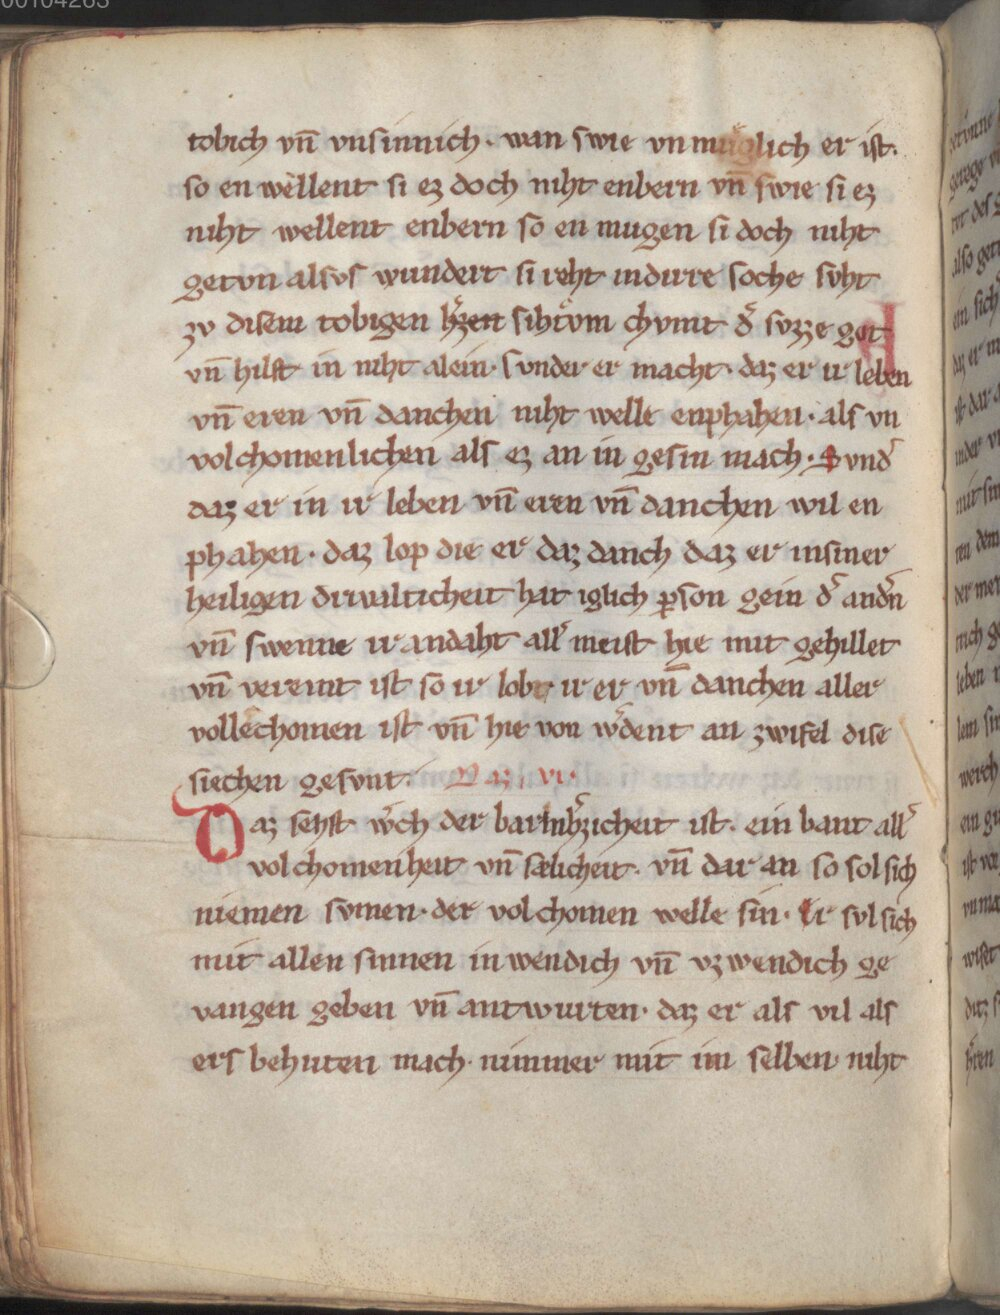 00104263
tobich vn̄ vnsinnich · wan swie vnmuglich er ist.
so en wellent si ez doch niht enbern vn̄ swie si ez
niht wellent enbern so en mugen si doch niht
getvn alsvs wundert si reht indirre soche svht
zv disem tobigen hͣzen sihtvm chvmt dͤ svzze got
vn̄ hilft in niht alein · svnder er macht · daz er ir leben
vn̄ eren vn̄ danchen niht welle enphahen · als vn
volchomenlichen als ez an in gesin mach · Svndͤ
daz er in ir leben vn̄ eren vn̄ danchen wil en
phahen · daz lop die er daz danch daz er insiner
heiligen drivalticheit hat iglich ꝑson gein dͤ andͤn
vn̄ swenne ir andaht allͤ meist hie mit gehillet
vn̄ vereint ist so ir lobe ir er vn̄ danchen aller
vollechomen ist vn̄ hie von wͤdent an zwifel dise
siechen gesvnt. Daz · vi ·
Daz sehst wͤch der barmhͤzicheit ist · ein bant allͤ
volchomenheit vn̄ sælicheit · vn̄ dar an so sol sich
niemen svmen · der volchomen welle sin · Er svl sich
mit allen sinnen inwendich vn̄ vzwendich ge
vangen geben vn̄ antwurten · daz er als vil als
ers behuten mach · nimmer mit im selben niht